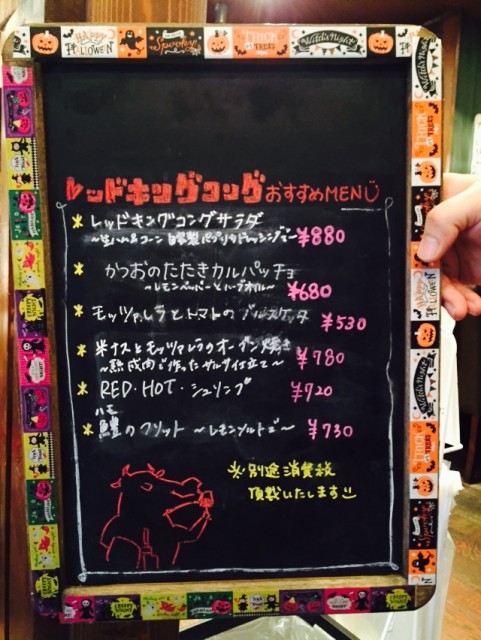 レッドキングコングおすすめMENU
* レッドキングコングサラダ
~生ハム&コーン 自家製パプリカドレッシングで~ ¥880
* かつおのたたきカルパッチョ
~レモンペッパーとハーブオイル~ ¥680
* モッツァレラとトマトのブルスケッタ ¥530
* 米ナスとモッツァレラのオーブン焼き
~熟成肉で作ったサルサイ仕立て~ ¥780
* RED・HOT・シュリンプ ¥720
ハモ
* 鱧のフリット ~レモンソルトで~ ¥730
※別途消費税
頂戴いたします
HAPPY HALLOWEEN
Spooky
TRICK or TREAT
Witch's Night